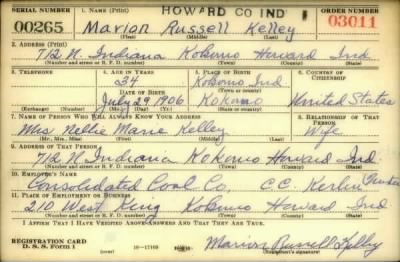 HOWARD CO IND 1
SERIAL NUMBER 1. NAME (Print) ORDER NUMBER
00265 Marion Russell Kelley 03011
(First) (Middle) (Last)
2. ADDRESS (Print)
712 N. Indiana Kokomo Howard Ind.
(Number and street or R. F. D. number) (Town) (County) (State)
3. TELEPHONE 4. AGE IN YEARS 5. PLACE OF BIRTH 6. COUNTRY OF CITIZENSHIP
34 Kokomo Ind
DATE OF BIRTH (Town or county)
July 29 1906 Kokomo United States
(Exchange) (Number) (Mo.) (Day) (Yr.) (State or country)
7. NAME OF PERSON WHO WILL ALWAYS KNOW YOUR ADDRESS 8. RELATIONSHIP OF THAT PERSON
Mrs Nellie Marie Kelley Wife
(Mr., Mrs., Miss) (First) (Middle) (Last)
9. ADDRESS OF THAT PERSON
712 N. Indiana Kokomo Howard Ind
(Number and street or R. F. D. number) (Town) (County) (State)
10. EMPLOYER'S NAME
Consolidated Coal Co. C.C. Kerlin Trustee
11. PLACE OF EMPLOYMENT OR BUSINESS
210 West King Kokomo Howard Ind
(Number and street or R. F. D. number) (Town) (County) (State)
I AFFIRM THAT I HAVE VERIFIED ABOVE ANSWERS AND THAT THEY ARE TRUE.
REGISTRATION CARD
D. S. S. Form 1 16—17105 Marion Russell Kelley
(Registrant's signature)